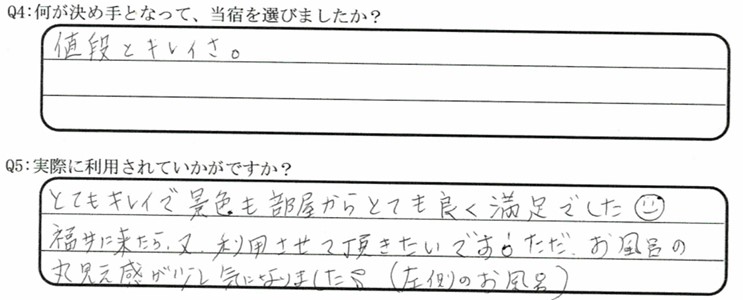 Q4:何が決め手となって、当宿を選びましたか?
値段とキレイさ。
Q5:実際に利用されていかがですか?
とてもキレイで景色も部屋からとても良く満足でした
福井に来たら、又、利用させて頂きたいです!ただ、お風呂の
丸見え感が少し気になりました(左側のお風呂)